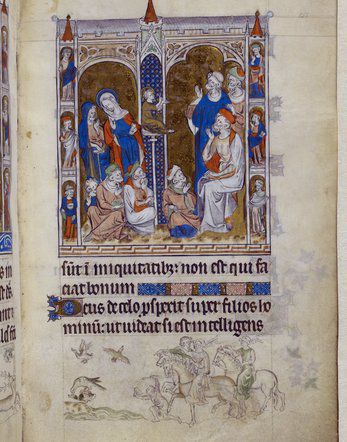 sūt i iniquitatib⁊: non est qui fa
ciat bonum
Deus de celo ꝓspexit super filios ho
minū: ut uideat si est intelligens